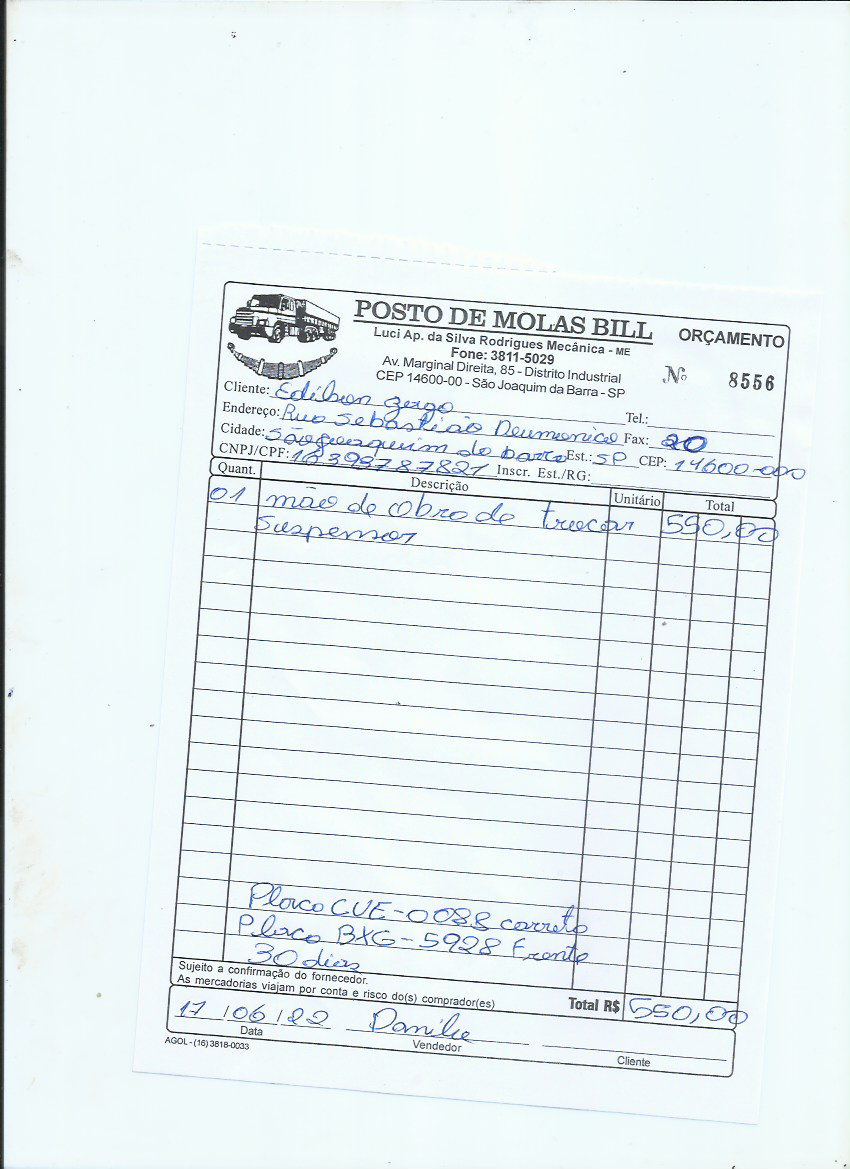 POSTO DE MOLAS BILL ORÇAMENTO
Luci Ap. da Silva Rodrigues Mecânica - ME
Fone: 3811-5029
Av. Marginal Direita, 85 - Distrito Industrial
CEP 14600-00 - São Joaquim da Barra - SP
Nº 8556
Cliente: Edilson Tel.:
Endereço: Rua Sebastião Fax: 20
Cidade: São Joaquim da barra Est.: SP CEP: 14600-000
CNPJ/CPF: 16393787821 Inscr. Est./RG:
Quant. Descrição Unitário Total
01 mão de obra de trocar 550,00
Suspensor
Placa CUE-0088 carreta
Placa BXG-5928 Frente
30 dias
Sujeito a confirmação do fornecedor.
As mercadorias viajam por conta e risco do(s) comprador(es)
Total R$ 550,00
17/06/22 Danilo
Data Vendedor Cliente
AGOL - (16) 3818-0033